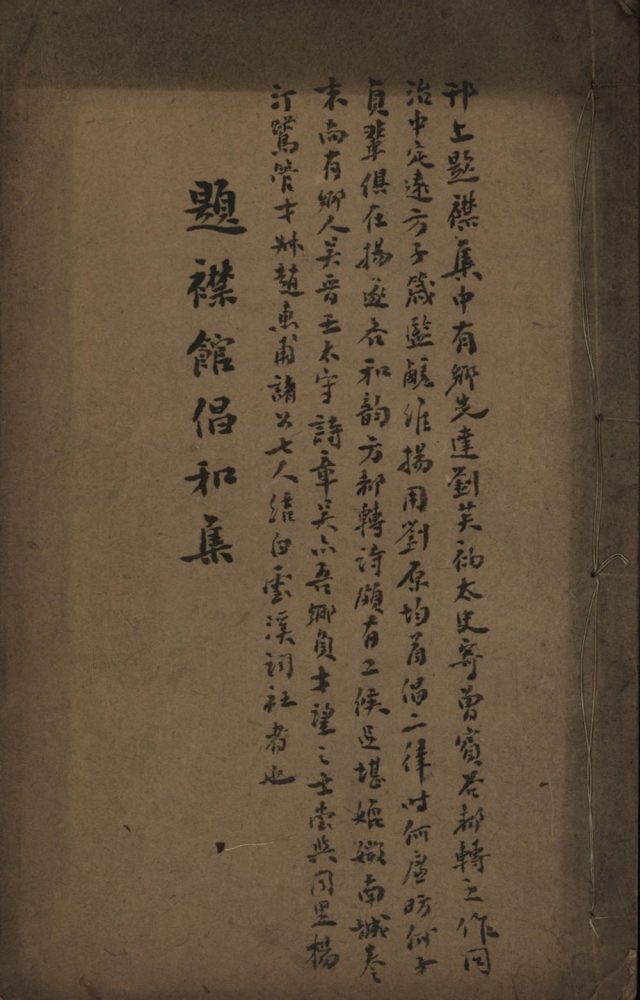 邗上題襟集中有鄉先達劉芙初太史寄曾賓谷都轉之作同
治中定遠方子箴監鹺維揚用劉原均首倡二律時何廉昉何子
貞輩俱在揚遂各和韵方都轉詩頗有工候足堪媲媺南城卷
末尚有鄉人吳晉壬太守詩章吳亦吾鄉負才望之士嘗與同里楊
汀鷺管才叔趙惠甫諸公七人結白雲溪詞社者也
題襟館倡和集